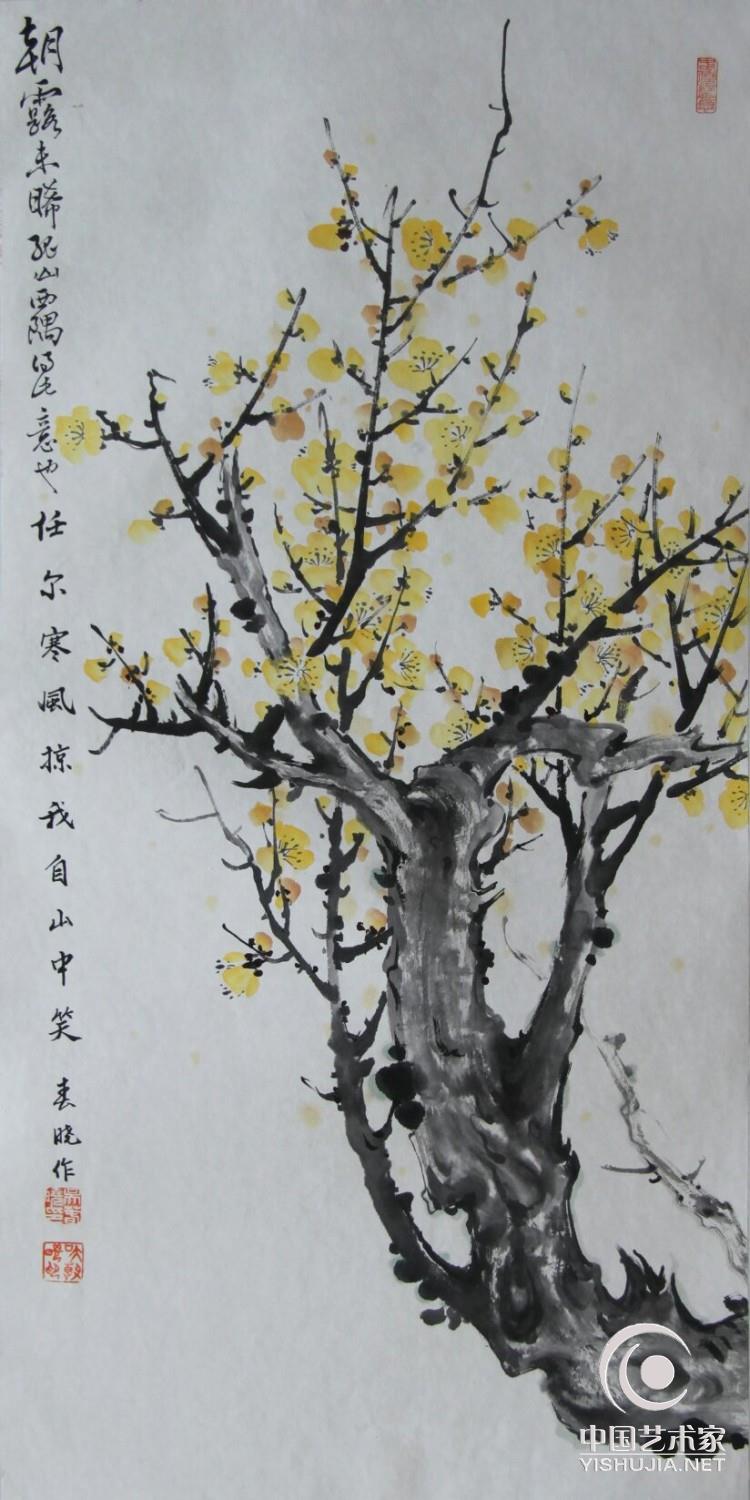 朝露未晞孤山西隅意也任尔寒風掠我自山中笑 春晓作
中国艺术家
YISHUJIA.NET